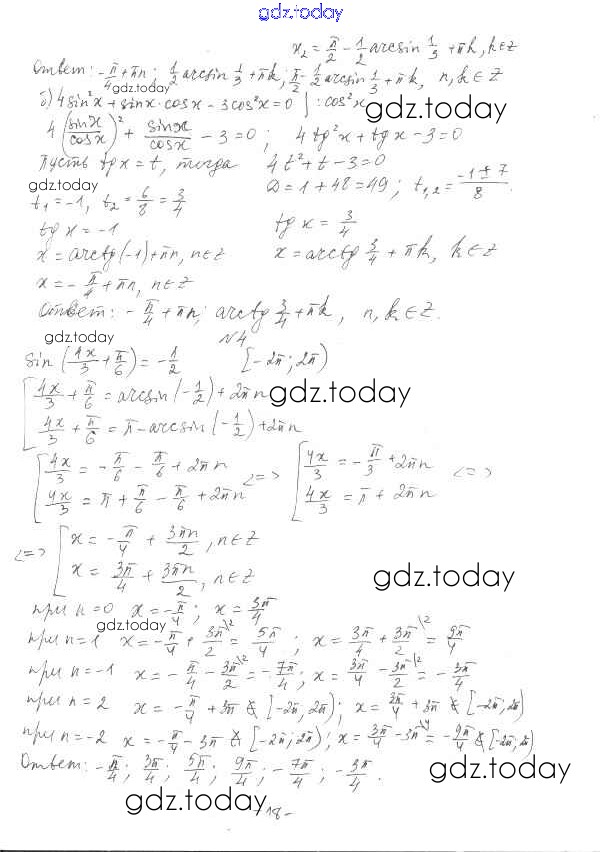 gdz.today
x₂ = π/2 - 1/2 arcsin 1/3 + πk, k∈Z
Ответ: -π/4 + πn; 1/2 arcsin 1/3 + πk; π/2 - 1/2 arcsin 1/3 + πk, n, k ∈ Z
б) 4 sin²x + sinx · cosx - 3cos²x = 0 | : cos²x
gdz.today
4 (sinx/cosx)² + sinx/cosx - 3 = 0; 4 tg²x + tgx - 3 = 0
Пусть tgx = t, тогда 4t² + t - 3 = 0
gdz.today
D = 1 + 48 = 49; t₁,₂ = (-1 ± 7)/8.
t₁ = -1, t₂ = 6/8 = 3/4
tg x = -1 tg x = 3/4
x = arctg(-1) + πn, n∈Z x = arctg 3/4 + πk, k∈Z
x = -π/4 + πn, n∈Z
Ответ: -π/4 + πn; arctg 3/4 + πk, n, k ∈ Z.
gdz.today
N4
sin (4x/3 + π/6) = -1/2 [-2π; 2π)
[ 4x/3 + π/6 = arcsin(-1/2) + 2πn
gdz.today
4x/3 + π/6 = π - arcsin(-1/2) + 2πn
[ 4x/3 = -π/6 - π/6 + 2πn <=> [ 4x/3 = -π/3 + 2πn <=>
4x/3 = π + π/6 - π/6 + 2πn 4x/3 = π + 2πn
<=> [ x = -π/4 + 3πn/2, n∈Z
x = 3π/4 + 3πn/2, n∈Z
gdz.today
при n=0 x = -π/4; x = 3π/4
gdz.today
при n=1 x = -π/4 + 3π\2/2 = 5π/4; x = 3π/4 + 3π\2/2 = 9π/4
при n=-1 x = -π/4 - 3π\2/2 = -7π/4; x = 3π/4 - 3π\2/2 = -3π/4
при n=2 x = -π/4 + 3π ∉ [-2π; 2π); x = 3π/4 + 3π ∉ [-2π; 2π)
при n=-2 x = -π/4 - 3π ∉ [-2π; 2π); x = 3π/4 - 3π\4 = -9π/4 ∉ [-2π; 2π)
Ответ: -π/4; 3π/4; 5π/4; 9π/4; -7π/4; -3π/4.
gdz.today
gdz.today
-18-